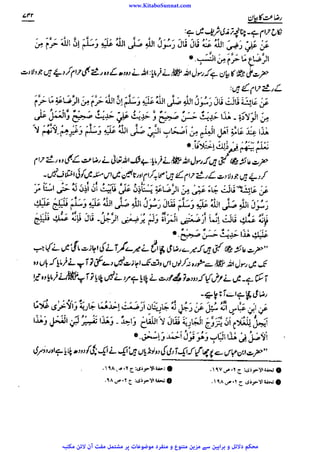 www.KitaboSunnat.com
رضاعت کا بیان
۷۳۲
نکاح حرام ہے۔ چنانچہ ترمذی شریف میں ہے:
عَنْ عَلِيٍّ رَضِيَ اللهُ عَنْهُ قَالَ قَالَ رَسُولُ اللهِ صَلَّى اللهُ عَلَيْهِ وَسَلَّمَ إِنَّ اللهَ حَرَّمَ مِنَ
الرَّضَاعِ مَا حَرَّمَ مِنَ النَّسَبِ.
حضرت علی کا بیان ہے کہ رسول اللہ ﷺ نے فرمایا: اللہ نے دودھ کے وہ رشتے بھی حرام کر دیے ہیں جو ولادت
کے رشتے حرام کیے ہیں:
عَنْ عَائِشَةَ قَالَتْ قَالَ رَسُولُ اللهِ صَلَّى اللهُ عَلَيْهِ وَسَلَّمَ إِنَّ اللهَ حَرَّمَ مِنَ الرَّضَاعَةِ مَا حَرَّمَ
مِنَ الْوِلَادَةِ. هَذَا حَدِيثٌ حَسَنٌ صَحِيحٌ وَالْعَمَلُ عَلَى
هَذَا عِنْدَ عَامَّةِ أَهْلِ الْعِلْمِ مِنْ أَصْحَابِ النَّبِيِّ صَلَّى اللهُ عَلَيْهِ وَسَلَّمَ وَغَيْرِهِمْ لَا
نَعْلَمُ بَيْنَهُمْ فِي ذَلِكَ اخْتِلَافًا.
حضرت عائشہ کہتی ہیں کہ رسول اللہ ﷺ نے فرمایا: بے شک اللہ تعالیٰ نے رضاعت کے بھی وہ رشتے حرام
کر دیے ہیں جو ولادت کے رشتے حرام کیے ہیں۔ صحابہ کرام اور تابعین میں اس مسئلہ میں کوئی اختلاف نہیں۔
عَنْ عَائِشَةَ قَالَتْ جَاءَ عَمِّي مِنَ الرَّضَاعَةِ يَسْتَأْذِنُ عَلَيَّ فَأَبَيْتُ أَنْ آذَنَ لَهُ حَتَّى أَسْتَأْمِرَ
رَسُولَ اللهِ صَلَّى اللهُ عَلَيْهِ وَسَلَّمَ فَقَالَ رَسُولُ اللهِ صَلَّى اللهُ عَلَيْهِ وَسَلَّمَ فَلْيَلِجْ
عَلَيْكِ فَإِنَّهُ عَمُّكِ قَالَتْ إِنَّمَا أَرْضَعَتْنِي الْمَرْأَةُ وَلَمْ يُرْضِعْنِي الرَّجُلُ. قَالَ فَإِنَّهُ عَمُّكِ فَلْيَلِجْ
عَلَيْكِ. هَذَا حَدِيثٌ حَسَنٌ صَحِيحٌ.
حضرت عائشہ کہتی ہیں کہ میرے رضاعی چچا نے میرے گھر آنے کی اجازت مانگی میں نے کہا جب
تک میں رسول اللہ سے مشورہ نہ کر لوں اس وقت تک اجازت نہیں دے سکتی تو آپ نے فرمایا کہ ہاں وہ
آ سکتا ہے۔ میں نے عرض کیا کہ دودھ تو مجھے عورت نے پلایا ہے مرد نے نہیں پلایا تو آپ ﷺ نے فرمایا وہ تیرا
رضاعی چچا ہے اسے آنا چاہیے۔
عَنِ ابْنِ عَبَّاسٍ أَنَّهُ سُئِلَ عَنْ رَجُلٍ لَهُ جَارِيَتَانِ أَرْضَعَتْ إِحْدَاهُمَا جَارِيَةً وَالْأُخْرَى غُلَامًا
أَيَحِلُّ لِلْغُلَامِ أَنْ يَتَزَوَّجَ الْجَارِيَةَ فَقَالَ لَا اللِّقَاحُ وَاحِدٌ. وَهَذَا تَفْسِيرُ لَبَنِ الْفَحْلِ وَهَذَا
الْأَصْلُ فِي هَذَا الْبَابِ وَهُوَ قَوْلُ أَحْمَدَ وَإِسْحَقَ.
تحفۃ الاحوذی: ج ۲، ص ۱۹۷
تحفۃ الاحوذی: ج ۲، ص ۱۹۸
محکم دلائل و براہین سے مزین متنوع و منفرد موضوعات پر مشتمل مفت آن لائن مکتبہ